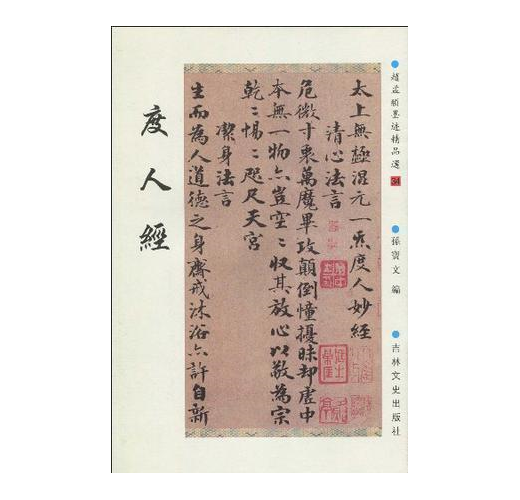 趙孟頫墨迹精品選 34
孫寶文 編
吉林文史出版社
太上無極混元一炁度人妙經
清心法言
危微寸衷萬魔畢攻顛倒憧擾昧却虛中
本無一物亦豈空〻收其放心以敬為宗
乾〻惕〻咫尺天宮
潔身法言
生而為人道德之身齋戒沐浴亦許自新
度人經